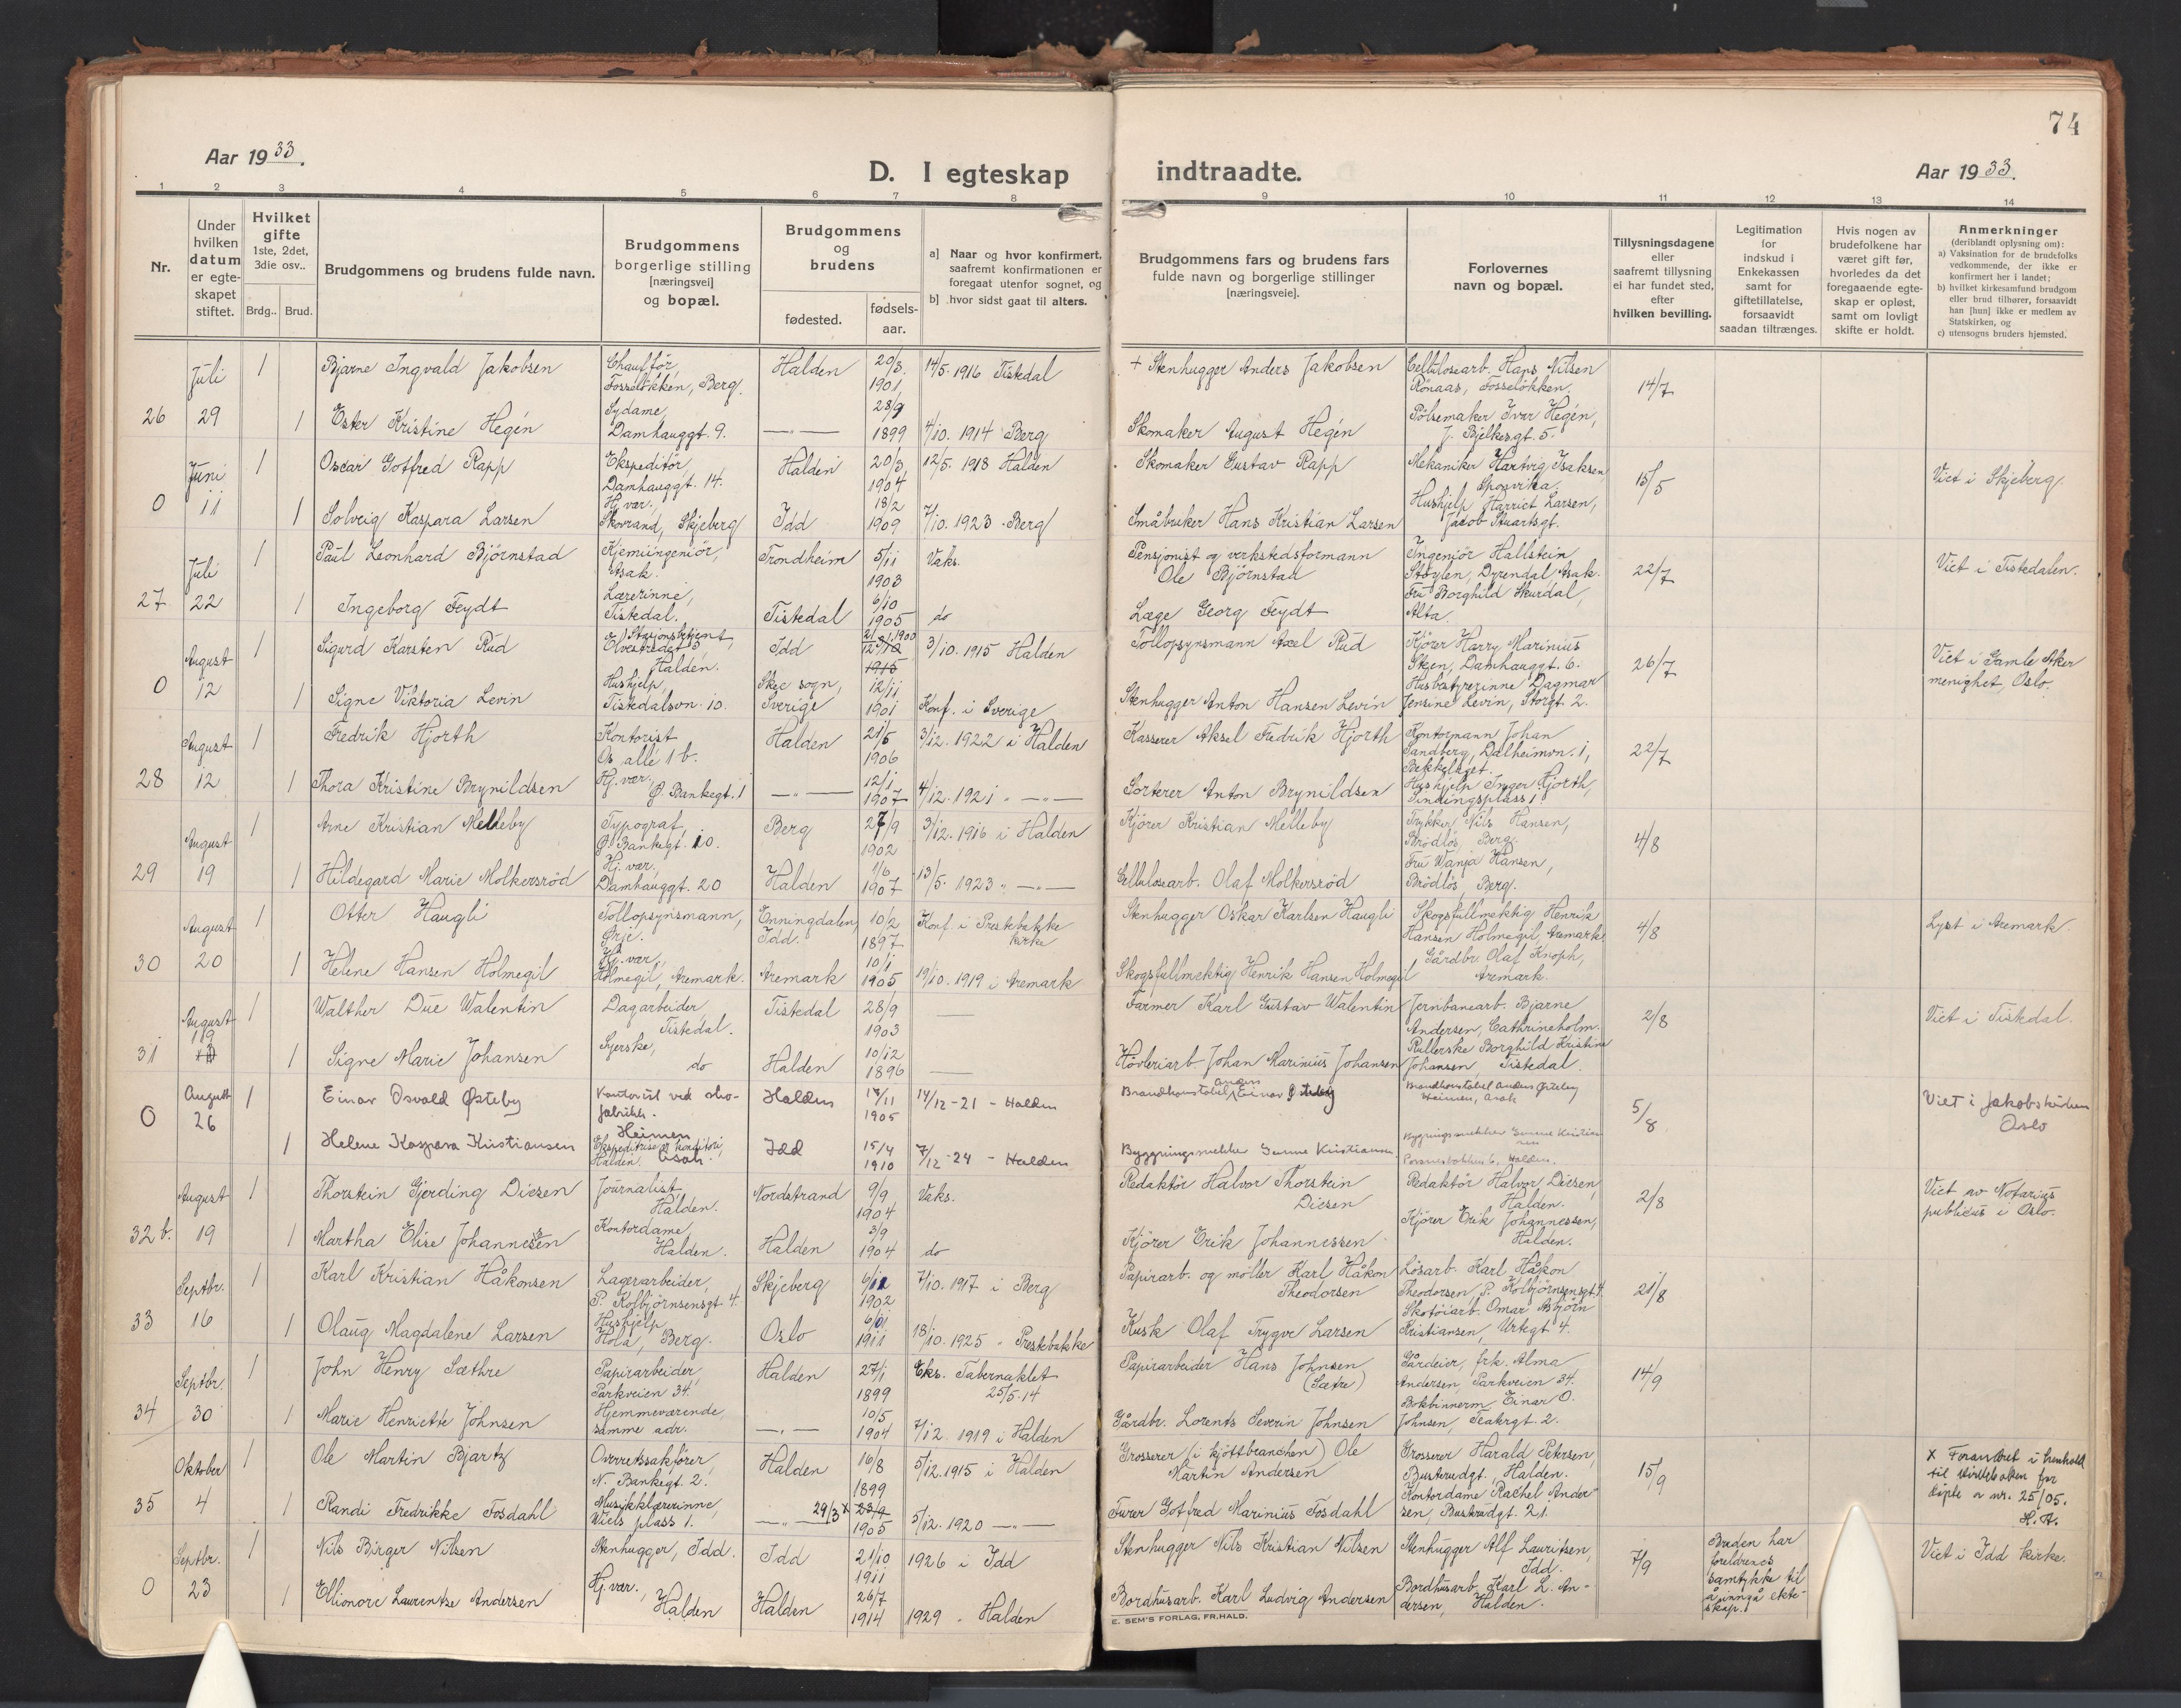 74
Aar 1933.
D. I egteskap
indtraadte.
Aar 1933.
1 2 3 4 5 6 7 8 9 10 11 12 13 14
Nr.
Under
hvilken
datum
er egte-
skapet
stiftet.
Hvilket
gifte
1ste, 2det,
3die osv..
Brdg.. Brud.
Brudgommens og brudens fulde navn.
Brudgommens
borgerlige stilling
[næringsvei]
og bopæl.
Brudgommens
og
brudens
fødested.
fødsels-
aar.
a] Naar og hvor konfirmert,
saafremt konfirmationen er
foregaat utenfor sognet, og
b] hvor sidst gaat til alters.
Brudgommens fars og brudens fars
fulde navn og borgerlige stillinger
[næringsveie].
Forlovernes
navn og bopæl.
Tillysningsdagene
eller
saafremt tillysning
ei har fundet sted,
efter
hvilken bevilling.
Legitimation
for
indskud i
Enkekassen
samt for
giftetillatelse,
forsaavidt
saadan tiltrænges.
Hvis nogen av
brudefolkene har
været gift før,
hvorledes da det
foregaaende egte-
skap er opløst,
samt om lovligt
skifte er holdt.
Anmerkninger
(deriblandt oplysning om):
a) Vaksination for de brudefolks
vedkommende, der ikke er
konfirmert her i landet;
b) hvilket kirkesamfund brudgom
eller brud tilhører, forsaavidt
han [hun] ikke er medlem av
Statskirken, og
c) utensogns bruders hjemsted.
26 Juli 29
1 Bjarne Ingvald Jakobsen
Chauffør,
Fosseløkken, Berg.
Halden 20/3. 1901, 14/5. 1916 Tistedal
+ Stenhugger Anders Jakobsen
Cellulosearb. Hans Nilsen
Rönaas, Fosseløkken,
14/7
1 Ester Kristine Hegén
Sydame,
Damhauggt. 9.
—„— 28/9 1899 4/10. 1914 Berg
Skomaker August Hegén
Pølsemaker Ivar Hegén,
J. Bjelkesgt. 5.
0 Juni 11
1 Oscar Gotfred Rapp
Ekspeditør,
Damhauggt. 14.
Halden 20/3, 1904 12/5. 1918 Halden
Skomaker Gustav Rapp
Mekaniker Hartvig Isaksen,
Sponvika.
15/5
Viet i Skjeberg.
1 Solveig Kaspara Larsen
Hj. vær.,
Skovrand, Skjeberg
Idd 18/2 1909 7/10. 1923 - Berg
Småbruker Hans Kristian Larsen
Hushjelp Harriet Larsen,
Jacob Stuartsgt.
27 Juli 22
1 Paul Leonhard Bjørnstad
Kjemiingeniør,
Asak.
Trondheim 5/11 1903 Vaks.
Pensjonist og verkstedsformann
Ole Bjørnstad
Ingeniør Hallstein
Støylen, Dyrendal, Asak.
22/7
Viet i Tistedalen.
1 Ingeborg Feydt
Lærerinne,
Tistedal.
Tistedal 6/10 1905 do
Læge Georg Feydt
Fru Borghild Skurdal,
Alta.
0 August 12
1 Sigurd Karsten Rud
Stasjonsbetjent,
Halden.
Idd 1900 1915 3/10. 1915 Halden
Tollopsynsmann Axel Rud
Kjører Harry Marinius
Skjen, Damhauggt. 6.
26/7
Viet i Gamle Aker
menighet, Oslo.
1 Signe Viktoria Levin
Hushjelp,
Tistedalsvn. 10.
Skee sogn,
Sverige 12/11 1901 Konf. i Sverige
Stenhugger Anton Hansen Levin
Husbestyrerinne Dagmar
Jensine Levin, Storgt. 2.
28 August 12
1 Fredrik Hjorth
Kontorist
Os allé 1 b.
Halden 21/5 1906 3/12. 1922 i Halden
Kasserer Aksel Fredrik Hjorth
Kontormann Johan
Sandberg, Dalheimvn. 1,
Bekkelaget.
22/7
1 Thora Kristine Brynildsen
Hj. vær.,
Ø. Bankegt. 1
—„— 12/1 1907 4/12. 1921 „ —„—
Sorterer Anton Brynildsen
Hushjelp Inger Hjorth,
Sindingsplass 1.
29 August 19
1 Arne Kristian Melleby
Typograf,
Ø. Bankegt. 10.
Berg 27/9 1902 3/12. 1916 i Halden
Kjører Kristian Melleby
Trykker Nils Hansen,
Brødløs, Berg.
4/8
1 Hildegard Marie Molkersrød
Hj. vær.,
Damhauggt. 20
Halden 1/6 1907 13/5. 1923 „ —„—
Cellulosearb. Olaf Molkersrød
Fru Wanja Hansen,
Brødløs, Berg.
30 August 20
1 Otter Haugli
Tollopsynsmann,
Ørje.
Enningdalen,
Idd. 10/2 1897 Konf. i Prestebakke
kirke
Stenhugger Oskar Karlsen Haugli
Skogsfullmektig Henrik
Hansen Holmegil, Aremark
4/8
Lyst i Aremark.
1 Helene Hansen Holmegil
Hj. vær.,
Holmegil, Aremark.
Aremark 10/1 1905 19/10. 1919 i Aremark
Skogsfullmektig Henrik Hansen Holmegil
Gårdbr. Olaf Knoph,
Aremark.
31 August 19
1 Walther Due Walentin
Dagarbeider,
Tistedal.
Tistedal 28/9 1903 —
Farmer Karl Gustav Walentin
Jernbanearb. Bjarne
Andersen, Cathrineholm.
2/8
Viet i Tistedal.
1 Signe Marie Johansen
Syerske,
do
Halden 10/12 1896 —
Høvleriarb. Johan Marinius Johansen
Rullerske Borghild Kristine
Johansen, Tistedal.
0 August 26
1 Einar Osvald Østeby
Kontorist ved sko-
fabrikk.
Halden 17/11 1905 14/12 - 21 - Halden
Brandkonstabel Anders Østeby
Brandkonstabel Anders Østeby
Heimen, Asak
5/8
Viet i Jakobskirken
Oslo
1 Helene Kaspara Kristiansen
Heimen
Halden. Asak.
Idd 15/4 1910 7/12 - 24 - Halden
Bygningssnekker Gunne Kristiansen
Bygningssnekker Gunne Kristiansen
32 b. August 19
1 Thorstein Gjerding Diesen
Journalist,
Halden.
Nordstrand 9/9 1904 Vaks.
Redaktør Halvor Thorstein
Diesen
Redaktør Halvor Diesen,
Halden.
2/8
Viet av Notarius
publicus i Oslo.
1 Martha Elise Johannessen
Kontordame,
Halden.
Halden 3/9 1904 do
Kjører Erik Johannessen
Kjører Erik Johannessen,
Halden.
33 Septbr. 16
1 Karl Kristian Håkonsen
Lagerarbeider,
P. Kolbjørnsensgt. 4.
Skjeberg 1902 7/10. 1917 i Berg
Papirarb. og møller Karl Håkon
Theodorsen
Løsarb. Karl Håkon
Theodorsen, P. Kolbjørnsensgt. 4.
21/8
1 Olaug Magdalene Larsen
Hushjelp,
Hola, Berg.
Oslo 1911 18/10. 1925 - Prestebakke
Kusk Olaf Trygve Larsen
Skotøiarb. Omar Asbjørn
Kristiansen, Urtegt. 4.
34 Septbr. 30
1 John Henry Sæthre
Papirarbeider,
Parkveien 34.
Halden 27/1 1899 Eks. Tabernaklet
25/5. 14
Papirarbeider Hans Johnsen
(Sætre)
Gårdeier, frk. Alma
Andersen, Parkveien 34.
14/9
1 Marie Henriette Johnsen
Hjemmeværende,
samme adr.
—„— 10/5 1904 7/12. 1919 i Halden
Gårdbr. Lorents Severin Johnsen
Bokbinnerm. Einar O.
Johnsen, Teatergt. 2.
35 Oktober 4
1 Ole Martin Bjartz
Overretssakfører,
N. Bankegt. 2.
Halden 16/8 1899 5/12. 1915 i Halden
Grosserer (i kjøttbranchen) Ole
Martin Andersen
Grosserer Harald Petersen,
Busterudgt., Halden.
15/9
x Forandret i henhold
til kirkeboken for
døpte a nr. 25/05.
H. A.
1 Randi Fredrikke Fosdahl
Musikklærerinne,
Wiels plass 1.
—„— 29/3 x 23/9 1905 5/12. 1920 —„—
Furer Gotfred Marinius Fosdahl
Kontordame Rachel Ander-
sen, Busterudgt. 21.
0 Septbr. 23
1 Nils Birger Nilsen
Stenhugger, Idd.
Idd 21/10 1911 1926 i Idd
Stenhugger Nils Kristian Nilsen
Stenhugger Alf Lauritsen,
Idd.
7/9
Bruden har
foreldrenes
samtykke til
å inngå ekte-
skap.
Viet i Idd kirke.
1 Ellionore Laurentse Andersen
Hj. vær.,
Halden
Halden 26/7 1914 1929 - Halden
Bordhusarb. Karl Ludvig Andersen
Bordhusarb. Karl L. An-
dersen, Halden.
E. SEM'S FORLAG, FR.HALD.